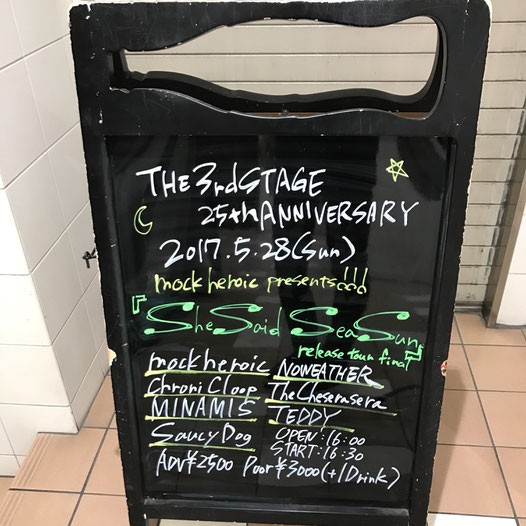 THE 3rd STAGE
25th ANNIVERSARY
2017.5.28(Sun)
mock heroic presents!!!
『She Said Sea Sun
release tour final』
mock heroic NOWEATHER
Chroni Cloop The Cheserasera
MINAMIS TEDDY
Saucy Dog OPEN:16:00
START:16:30
ADV¥2500 Door¥3000(+1Drink)